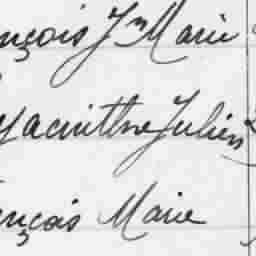 nçois Jn Marie
yacinthe Julien
ençois Marie